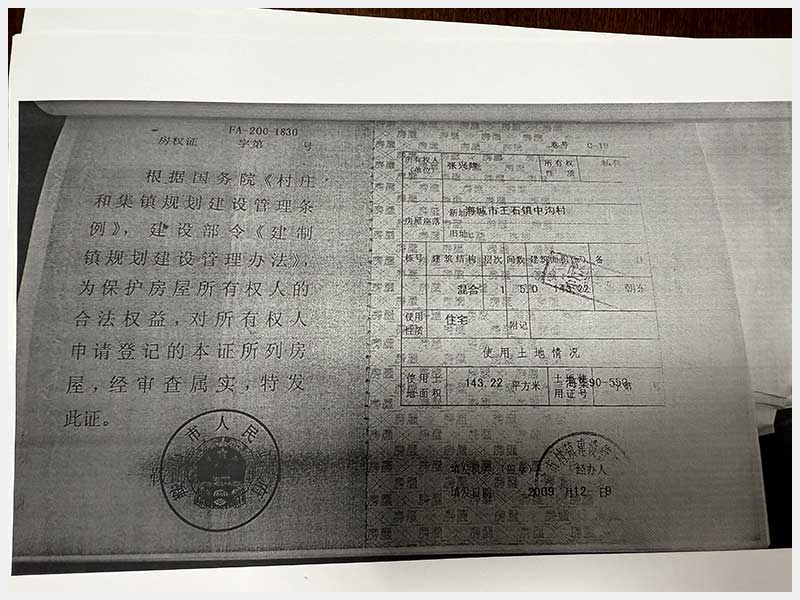 FA-200-1830
房权证 字第 号
根据国务院《村庄
和集镇规划建设管理条
例》，建设部令《建制
镇规划建设管理办法》，
为保护房屋所有权人的
合法权益，对所有权人
申请登记的本证所列房
屋，经审查属实，特发
此证。
市人民
卷号 C-19
所有权人
(单位)
张兴隆
所有权
性质
私有
房屋座落
新址 海城市王石镇中沟村
旧址
栋号 建筑结构 层次 间数 建筑面积(m²) 备
混合 1 5.0 143.22
使用
性质
住宅
附记
使用土地情况
使用土
地面积
143.22 平方米
用证号
海集90-550
填发机关 (盖章)
经办人
填发日期 2009 月12 日9